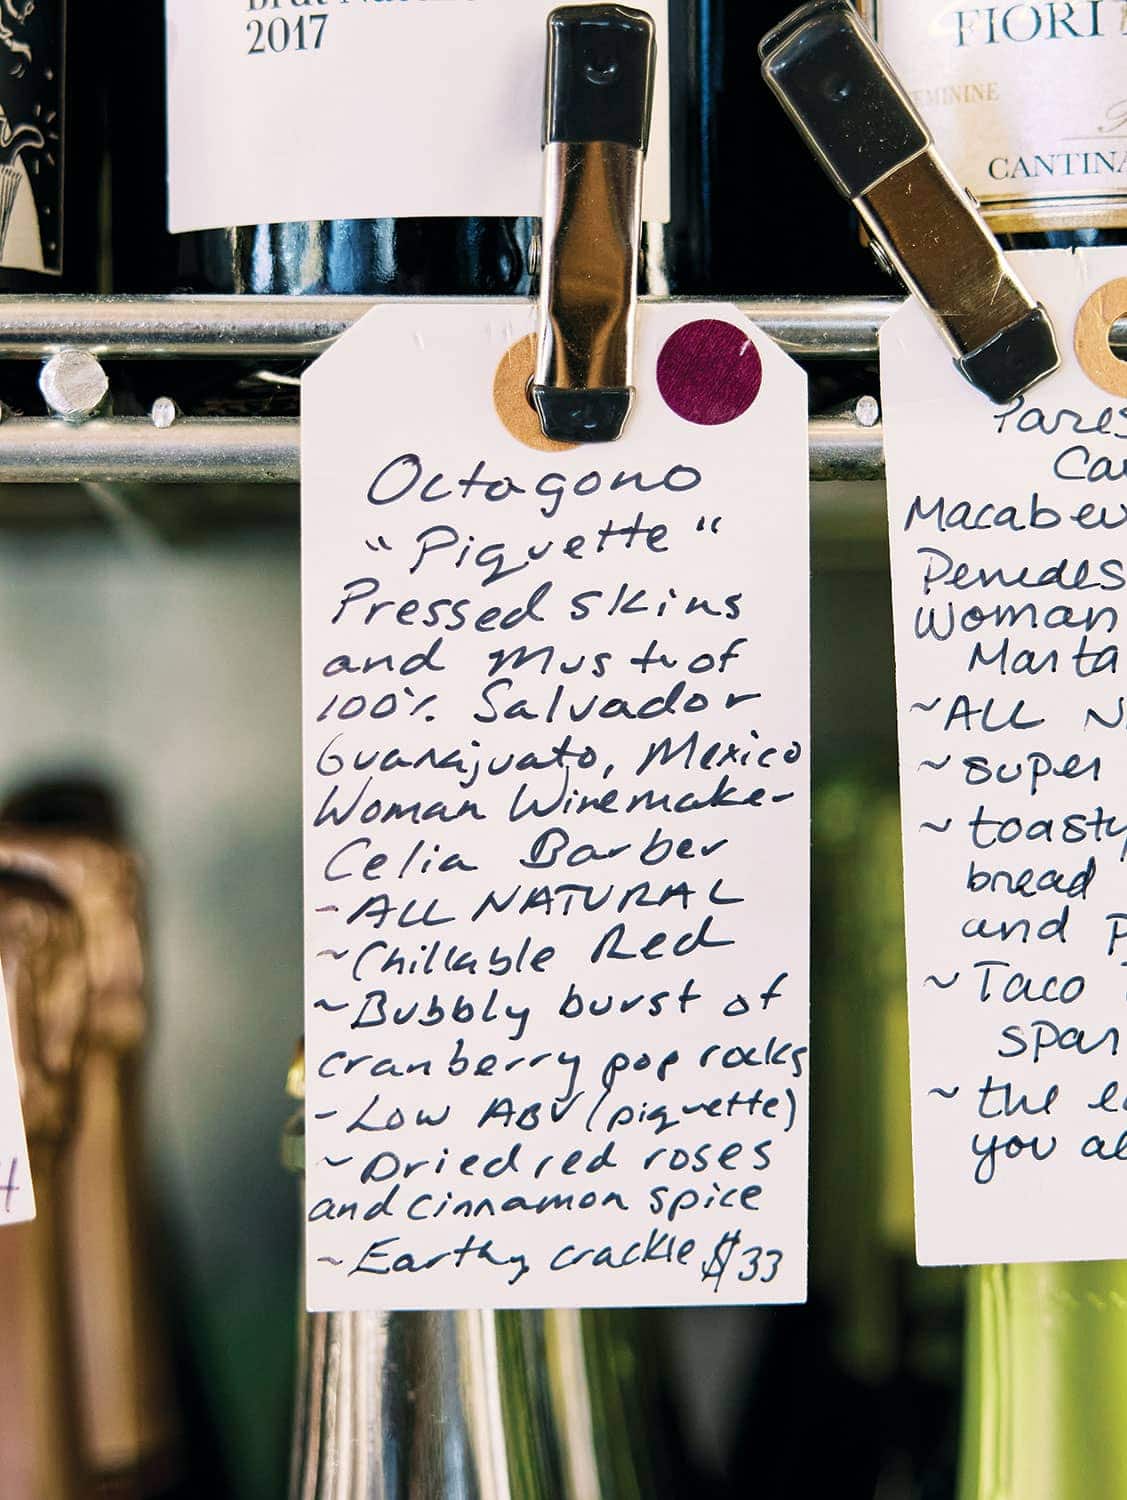 2017
FIORI
FEMININE
CANTINA
Octagono
"Piquette"
Pressed skins
and Must of
100% Salvador
Guanajuato, Mexico
Woman Winemaker
Celia Barber
- ALL NATURAL
~ Chillable Red
~ Bubbly burst of
cranberry pop rocks
- Low ABV (piquette)
~ Dried red roses
and cinnamon spice
~ Earthy crackle $33
Macabeu
Penedes
Woman
Marta
~ ALL
~ super
~ toasty
bread
and
~ Taco
~ the
you